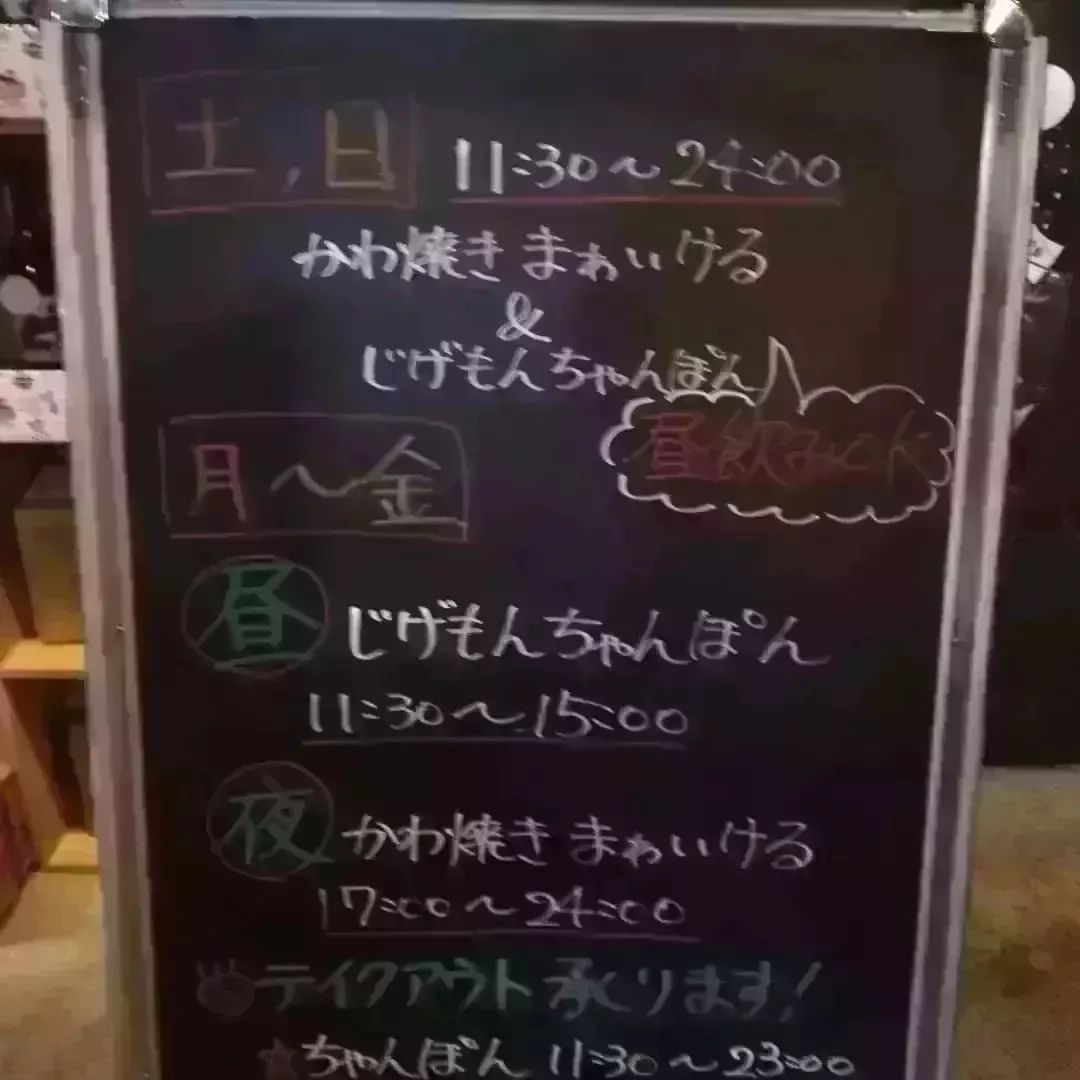 土,日 11:30〜24:00
かわ焼き まぁいける
&
じげもんちゃんぽん
昼飲みOK
月〜金
昼 じげもんちゃんぽん
11:30〜15:00
夜 かわ焼き まぁいける
17:00〜24:00
テイクアウト承ります!
★ちゃんぽん 11:30〜23:00